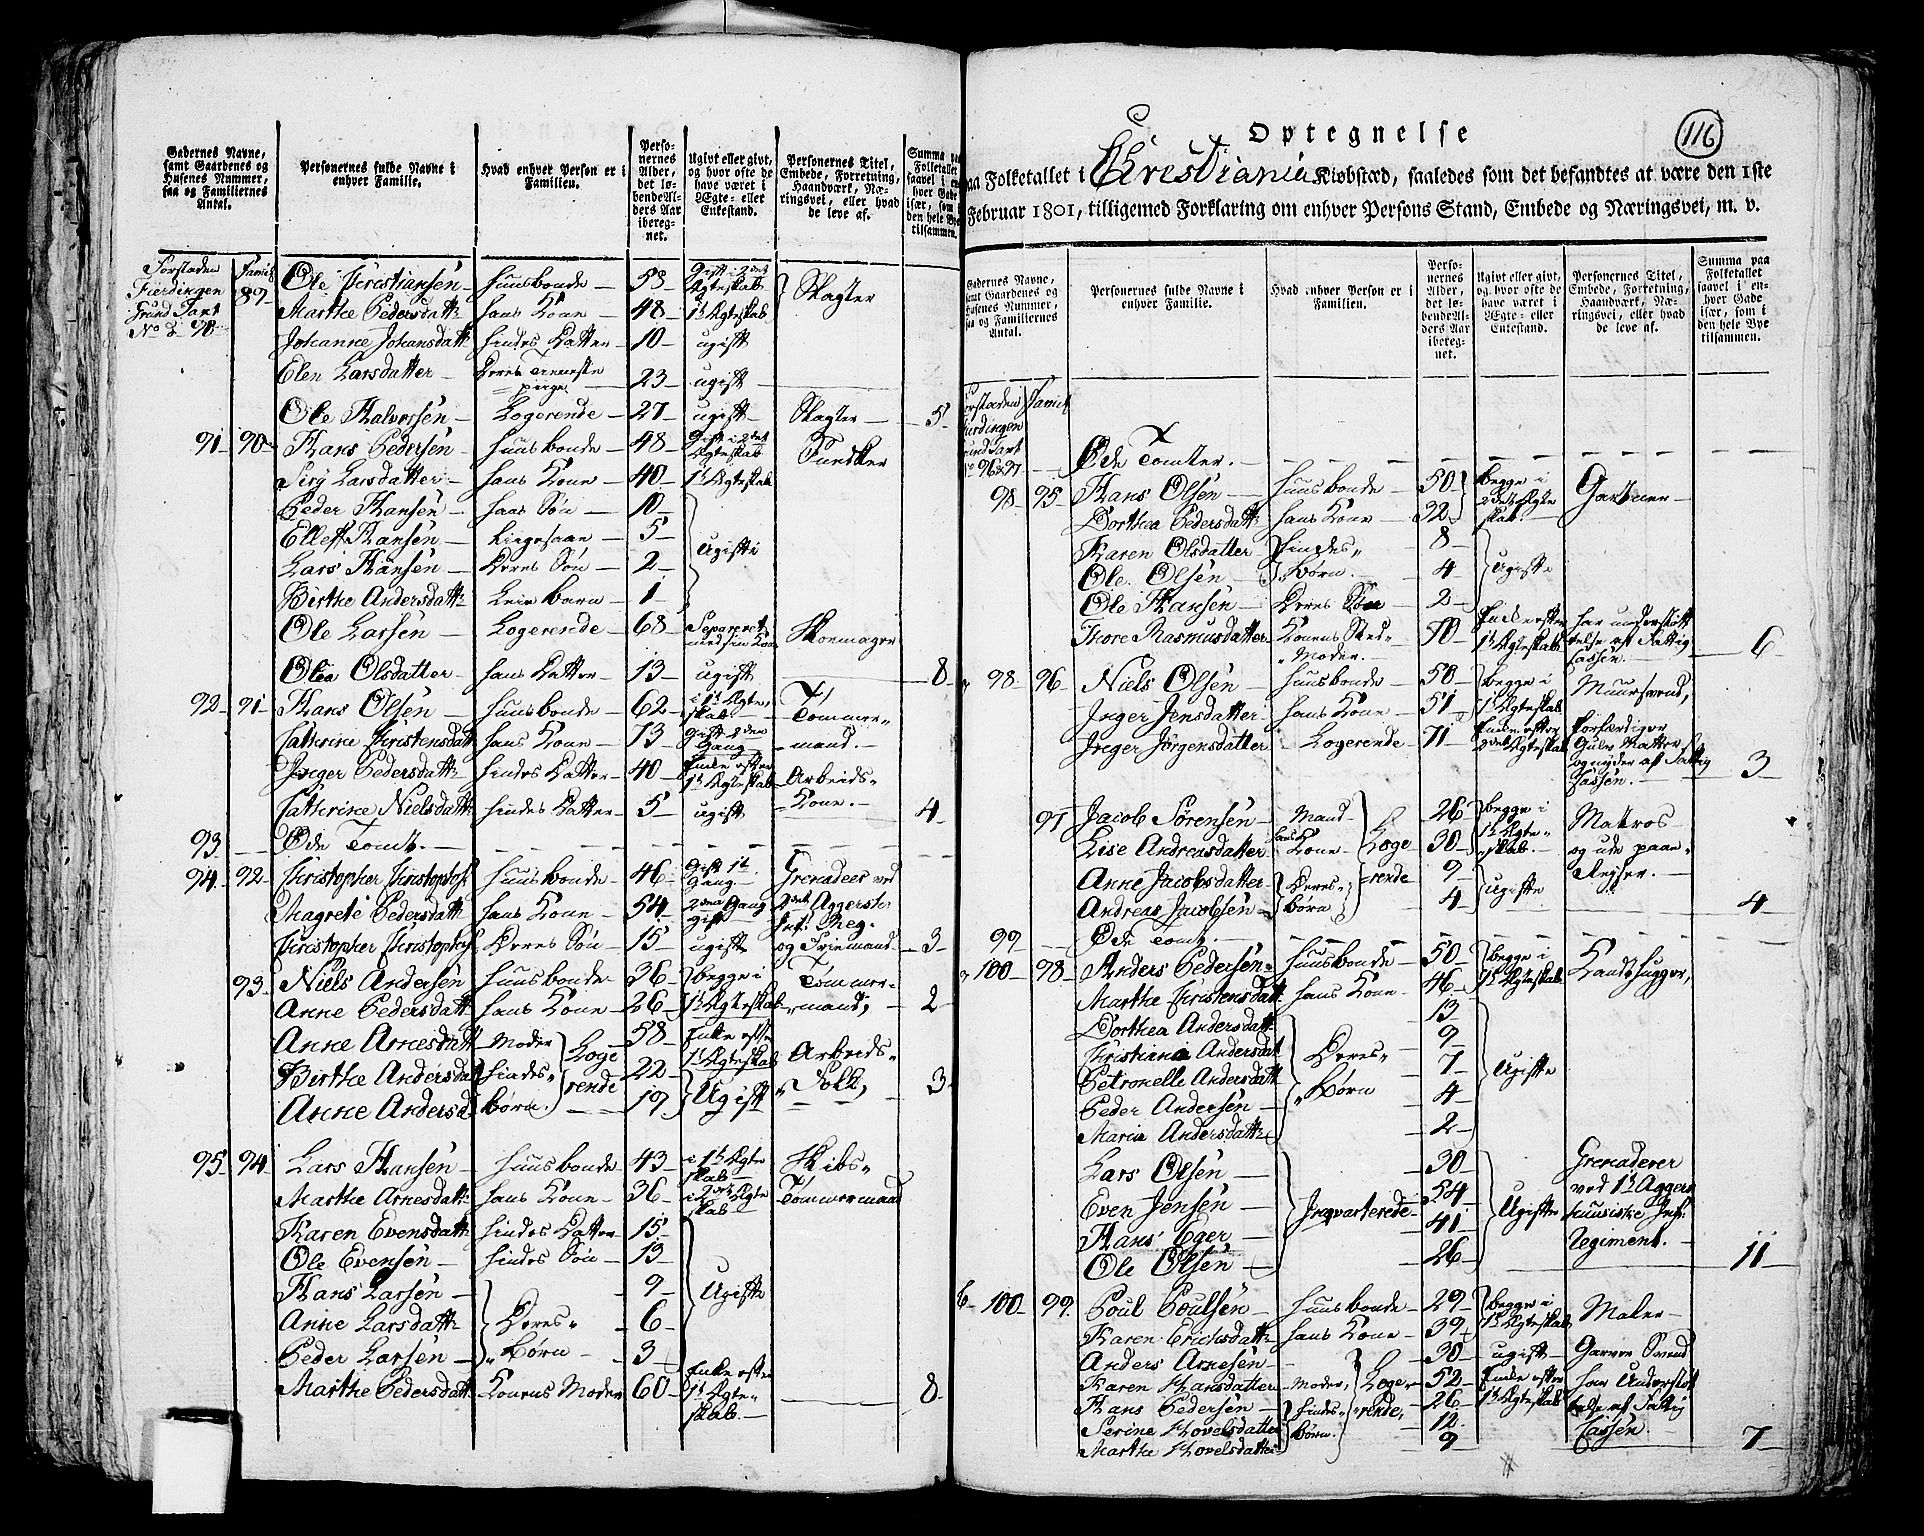 Gadernes Navne, samt Gaardenes og Husenes Nummer, saa og Familiernes Antal.
Personernes fulde Navne i enhver Familie.
Hvad enhver Person er i Familien.
Personernes Alder, det løbende Alders Aar iberegnet.
Ugivt eller givt, og hvor ofte de have været i Ægte- eller Enkestand.
Personernes Titel, Embede, Forretning, Haandværk, Næringsvei, eller hvad de leve af.
Summa paa Folketallet
Forstaden Fierdingen Grund Tart No 90 Famil:
89 Ole Christiansen huusbonde 58 Gift i 2det Ægteskab Slagter
Marthe Pedersdatt: hans Kone 48 1te Ægteskab
Johanne Johansdatt: hindes Datter 10 ugift
Elen Larsdatter Deres Tieneste pige 23 ugift
Ole Halvorsen Logerende 27 ugift Slagter 5
91 90 Hans Pedersen huusbonde 48 Gift i 2det Ægteskab
Sirj Larsdatter hans Kone 40 1te Ægteskab
Peder Hansen hans Søn 10
Elleff Hansen Ligesaa 5 ugifte
Lars Hansen Deres Søn 2
Birthe Andersdatt: Leie barn 1
Ole Larsen Logerende 68 Separeret med sin Kone Skoemager
Olea Olsdatter hans Datter 13 ugift 8
92 91 Hans Olsen huusbonde 62 i 1te Ægteskab Tømmermand
Cathrine Christensdatt hans Kone 73 Gift 2den Gang
Inger Pedersdatt: hindes Datter 40 Enke efter 1te Ægteskab Arbeids Kone
Cathrine Nielsdatt: hindes Datter 5 ugift 4
93 Øde Tomt
94 92 Christopher Christophers: huusbonde 46 Gift 1te Gang Grenadeer ved
Magrete Pedersdatt: hans Kone 54 2den Gang gift 2det Aggersh: Inf: Reg:
Christopher Christophers: Deres Søn 15 ugift og Friemand 3
93 Niels Andersen huusbonde 36 begge i Tømmer-
Anne Pedersdatt: hans Kone 26 1te Ægteskab mand, 2
Anne Arnesdatt Moder 58 Enke efter 1te Ægteskab
Birthe Andersdatt hindes Børn Logerende 22 Ugift Arbeids Folk,
Anne Andersd 19 3
95 94 Lars Hansen huusbonde 43 i 1te Ægteskab Skibs-
Marthe Arnesdatt: hans Kone 36 i 2det Ægteskab Tømmermand
Karen Evensdatt: hindes Datter 15
Ole Evensen hindes Søn 13
Hans Larsen 9 Ugifte
Anne Larsdatt: Deres 6
Peder Larsen Børn 3
Marthe Pedersdatt: Konens Moder 60 Enke efter 1te Ægteskab 8
116
Optegnelse
paa Folketallet i Christiania Kiøbstæd, saaledes som det befandtes at være den 1ste
Februar 1801, tilligemed Forklaring om enhver Persons Stand, Embede og Næringsvei, m. v.
Gadernes Navne, samt Gaardenes og Husenes Nummer, saa og Familiernes Antal.
Personernes fulde Navne i enhver Familie.
Hvad enhver Person er i Familien.
Personernes Alder, det løbende Alders Aar iberegnet.
Ugivt eller givt, og hvor ofte de have været i Ægte- eller Enkestand.
Personernes Titel, Embede, Forretning, Haandværk, Næringsvei, eller hvad de leve af.
Summa paa Folketallet saavel i enhver Gade især, som i den hele Bye tilsammen.
Forstaden Fierdingen Grund Tart No 96 & 97 Famil:
Øde Tomter.
98 95 Hans Olsen huusbonde 50 begge i 2det Ægteskab Gartner
Dorthea Pedersdatt: hans Kone 32
Karen Olsdatter hindes 8
Ole Olsen Børn 4 ugifte
Ole Hansen Deres Søn 2
Thore Rasmusdatter Konens Sted Moder 70 Enke efter 1te Ægteskab har understøttelse af Fattig Cassen. 6
98 96 Niels Olsen huusbonde 50 begge i 1te Ægteskab Muursvend,
Inger Jensdatter hans Kone 51
Inger Jørgensdatter Logerende 71 Enke efter 2det Ægteskab forfærdiger Gulv Matter og nyder af Fattig Cassen. 3
97 Jacob Sørensen Mand 26 begge i 1te Ægteskab Matros
Lise Andreasdatter hans Kone Logerende 30 og ude paa en
Anne Jacobsdatter Deres 9 ugifte Reise.
Andreas Jacobsen Børn 4 4
99 Øde Tomt.
100 98 Anders Pedersen huusbonde 50 begge i
Marthe Christensdatt: hans Kone 46 1te Ægteskab
Dorthea Andersdatt: 13
Christiana Andersdat 9
Petronelle Andersdatt Deres 7 Ugifte
Peder Andersen Børn 4
Maria Andersdatt: 2
Lars Olsen 30 Grenaderer
Even Jensen Inqvarterede 54 Ugifte ved 1te Aggers
Hans Eger 41 huusiske Inf:
Ole Olsen 26 Regiment. 11
100 99 Poul Poulsen huusbonde 29 begge i Maler
Karen Erichsdatt: hans Kone 39 1te Ægteskab
Anders Arnesen 30 ugift Garver Svend
Karen Hansdatter Moder, Logerende, 52 Enke efter har Understøt
Hans Pedersen hindes 26 1te Ægteskab telse af Fattig
Serine Hovelsdatter Børn. 12 Cassen.
Marthe Hovelsdatter 9 7